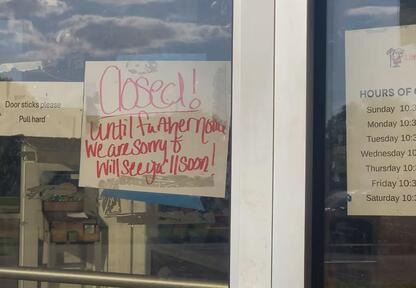 Door sticks please
Pull hard
Closed!
Until futher notice
We are sorry &
Will see ya'll soon!
HOURS OF
Sunday 10:3
Monday 10:
Tuesday 10:
Wednesday 10
Thursday 10:
Friday 10:3
Saturday 10: